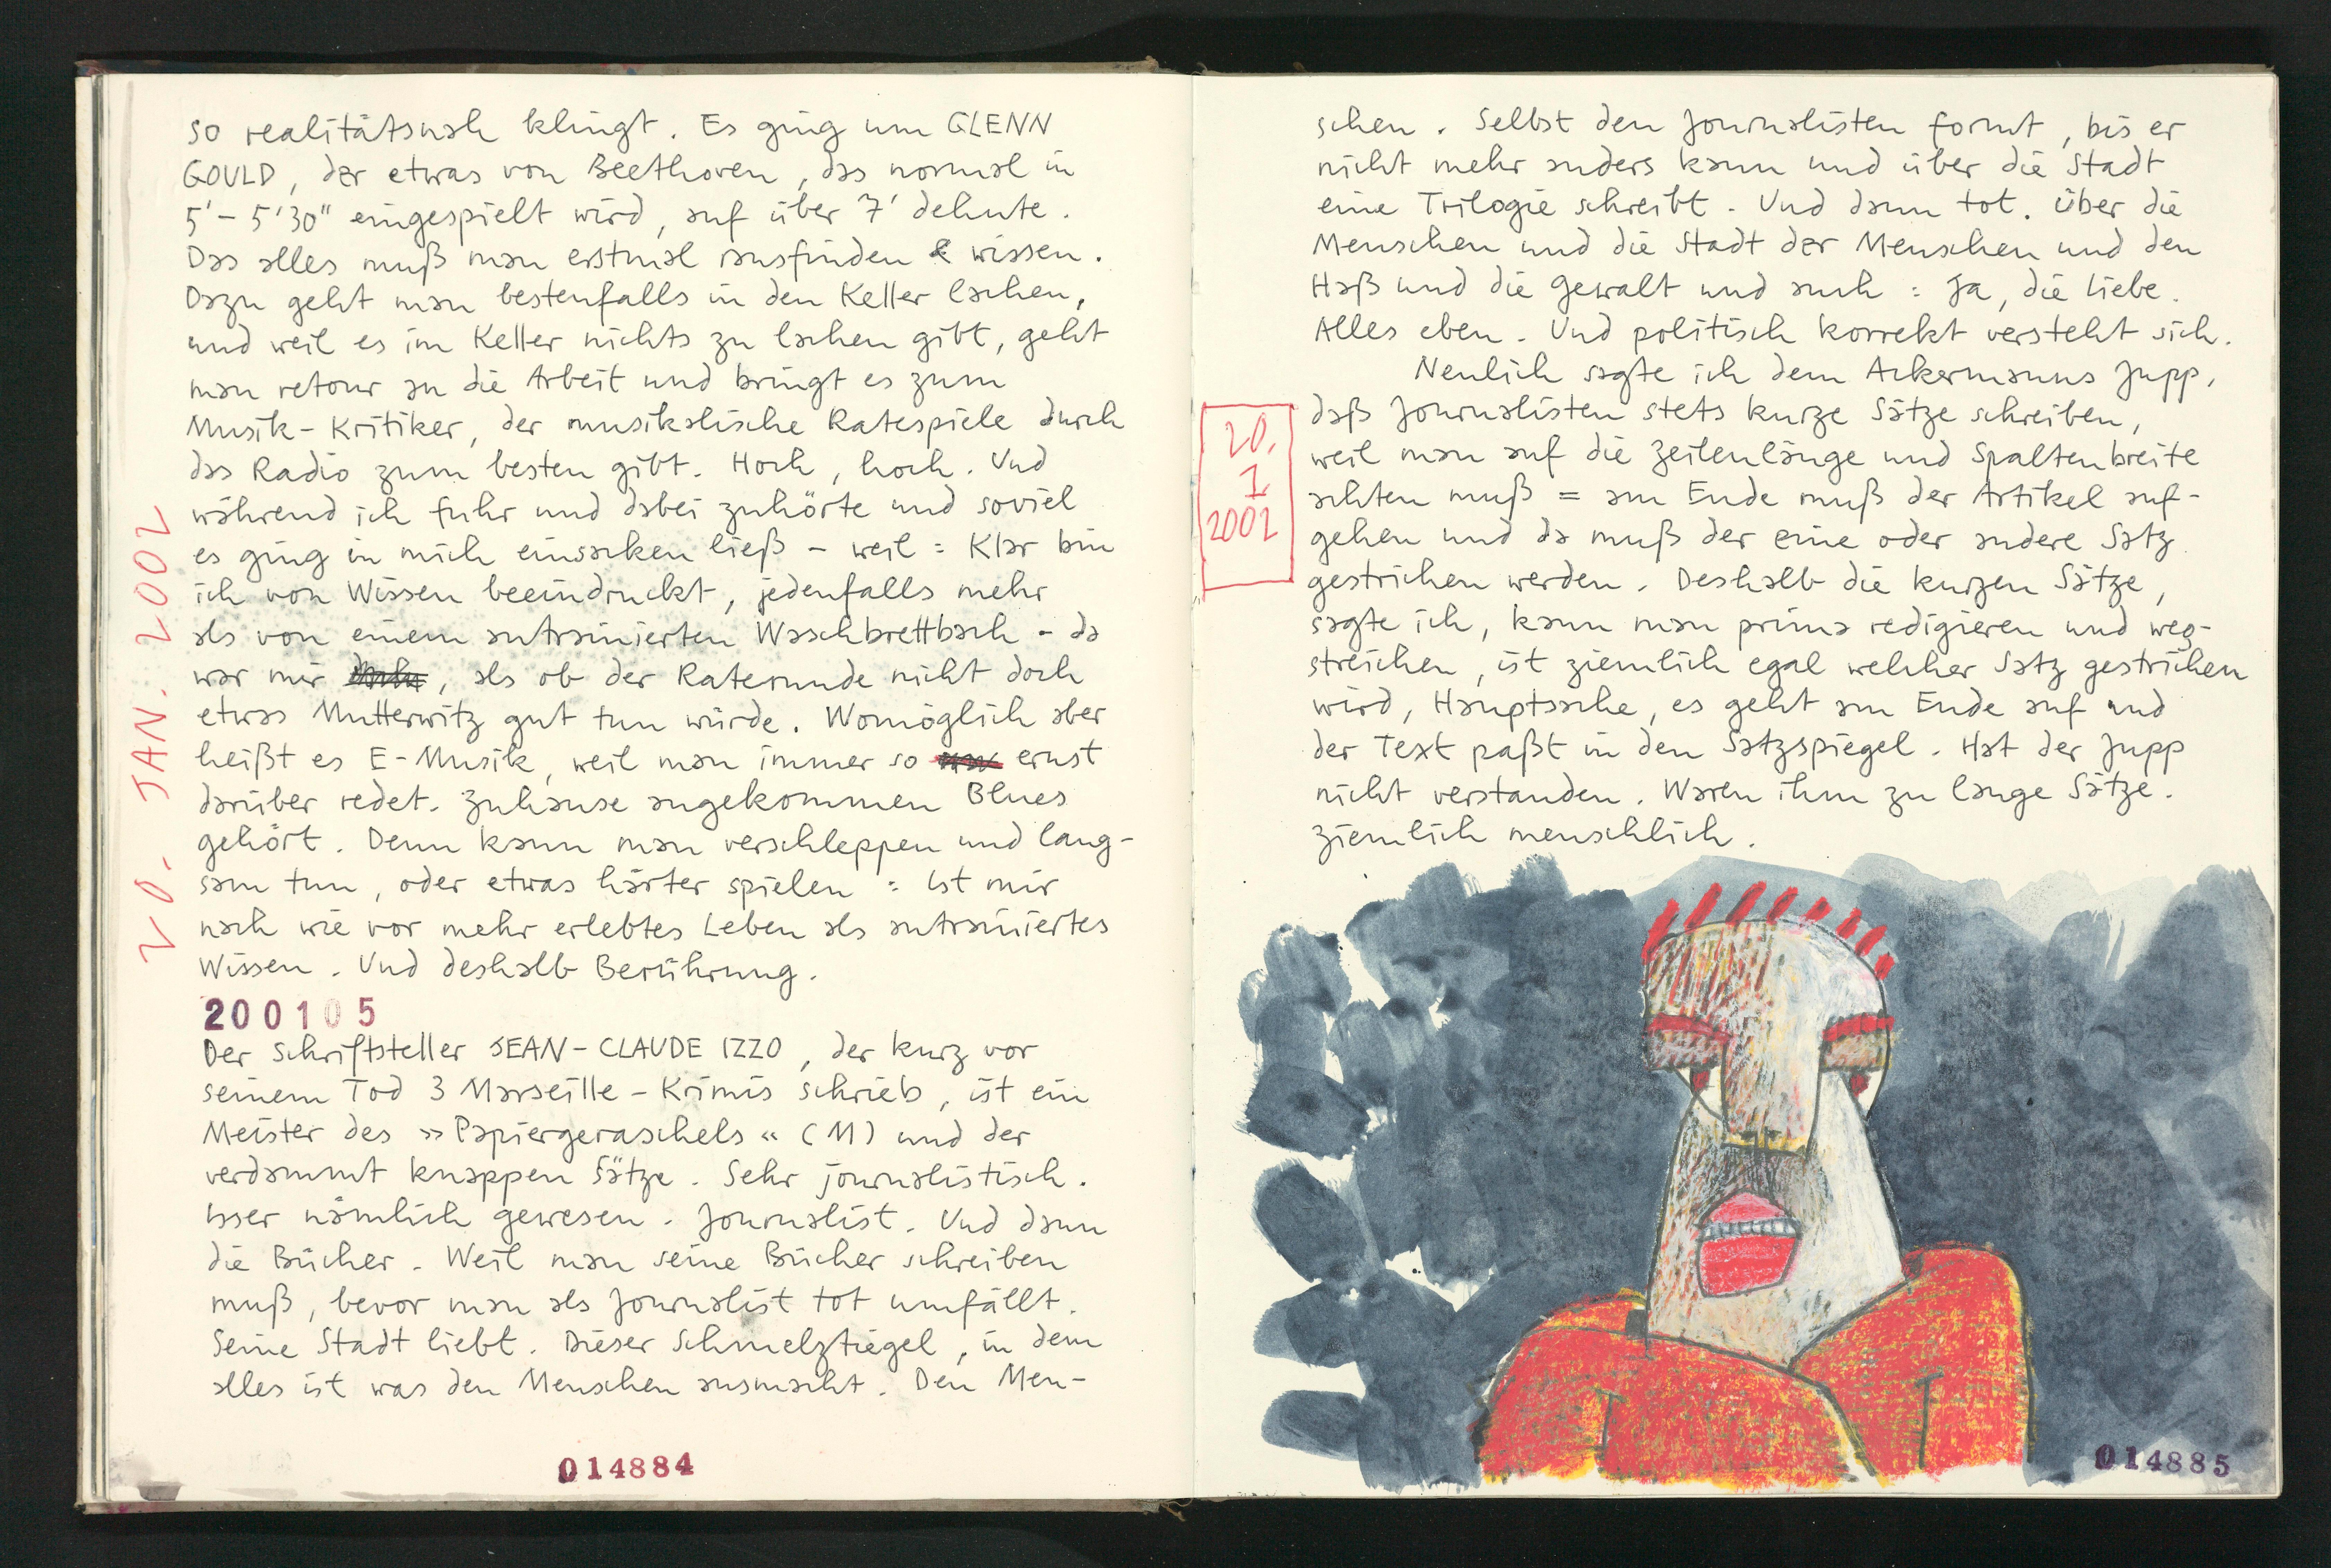 20. JAN. 2002
so realitätsnah klingt. Es ging um GLENN
GOULD, der etwas von Beethoven, das normal in
5'- 5'30" eingespielt wird, auf über 7' dehnte.
Das alles muß man erstmal rausfinden & wissen.
Dazu geht man bestenfalls in den Keller lachen,
und weil es im Keller nichts zu lachen gibt, geht
man retour an die Arbeit und bringt es zum
Musik-Kritiker, der musikalische Ratespiele durch
das Radio zum besten gibt. Hoch, hoch. Und
während ich fuhr und dabei zuhörte und soviel
es ging in mich einsacken ließ - weil: Klar bin
ich von Wissen beeindruckt, jedenfalls mehr
als von einem antrainierten Waschbrettbach - da
war mir , als ob der Raterunde nicht doch
etwas Mutterwitz gut tun würde. Womöglich aber
heißt es E-Musik, weil man immer so ernst
darüber redet. Zuhause angekommen Blues
gehört. Denn kann man verschleppen und lang-
sam tun, oder etwas härter spielen: Ist mir
nach wie vor mehr erlebtes Leben als antrainiertes
Wissen. Und deshalb Berührung.
200105
Der Schriftsteller JEAN-CLAUDE IZZO, der kurz vor
seinem Tod 3 Marseille-Krimis schrieb, ist ein
Meister des »Papiergeraschels« (M) und der
verdammt knappen Sätze. Sehr journalistisch.
Isser nämlich gewesen. Journalist. Und dann
die Bücher. Weil man seine Bücher schreiben
muß, bevor man als Journalist tot umfällt.
Seine Stadt liebt. Dieser Schmelztiegel, in dem
alles ist was den Menschen ausmacht. Den Men-
014884
schen. Selbst den Journalisten formt, bis er
nicht mehr anders kann und über die Stadt
eine Trilogie schreibt. Und dann tot. Über die
Menschen und die Stadt der Menschen und den
Haß und die Gewalt und auch: Ja, die Liebe.
Alles eben. Und politisch korrekt versteht sich.
Neulich sagte ich dem Ackermanns Jupp,
20.
1
2002
daß Journalisten stets kurze Sätze schreiben,
weil man auf die Zeilenlänge und Spaltenbreite
achten muß = am Ende muß der Artikel auf-
gehen und da muß der eine oder andere Satz
gestrichen werden. Deshalb die kurzen Sätze,
sagte ich, kann man prima redigieren und weg-
streichen, ist ziemlich egal welcher Satz gestrichen
wird, Hauptsache, es geht am Ende auf und
der Text paßt in den Satzspiegel. Hat der Jupp
nicht verstanden. Waren ihm zu lange Sätze.
Ziemlich menschlich.
014885